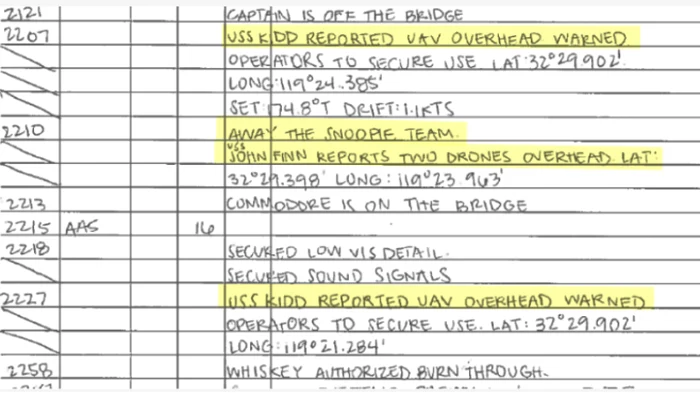 2121 CAPTAIN IS OFF THE BRIDGE
2207 USS KIDD REPORTED UAV OVERHEAD WARNED
OPERATORS TO SECURE USE. LAT: 32°29.902'
LONG: 119°24.385'
SET: 174.8°T DRIFT: 1.1KTS
2210 AWAY THE SNOOPIE TEAM.
USS JOHN FINN REPORTS TWO DRONES OVERHEAD LAT:
32°29.398' LONG: 119°23.963'
2213 COMMODORE IS ON THE BRIDGE
2215 AAS 16
2218 SECURED LOW VIS DETAIL.
SECURED SOUND SIGNALS
2227 USS KIDD REPORTED UAV OVERHEAD WARNED
OPERATORS TO SECURE USE. LAT: 32°29.902'
LONG: 119°21.284'
2258 WHISKEY AUTHORIZED BURN THROUGH.